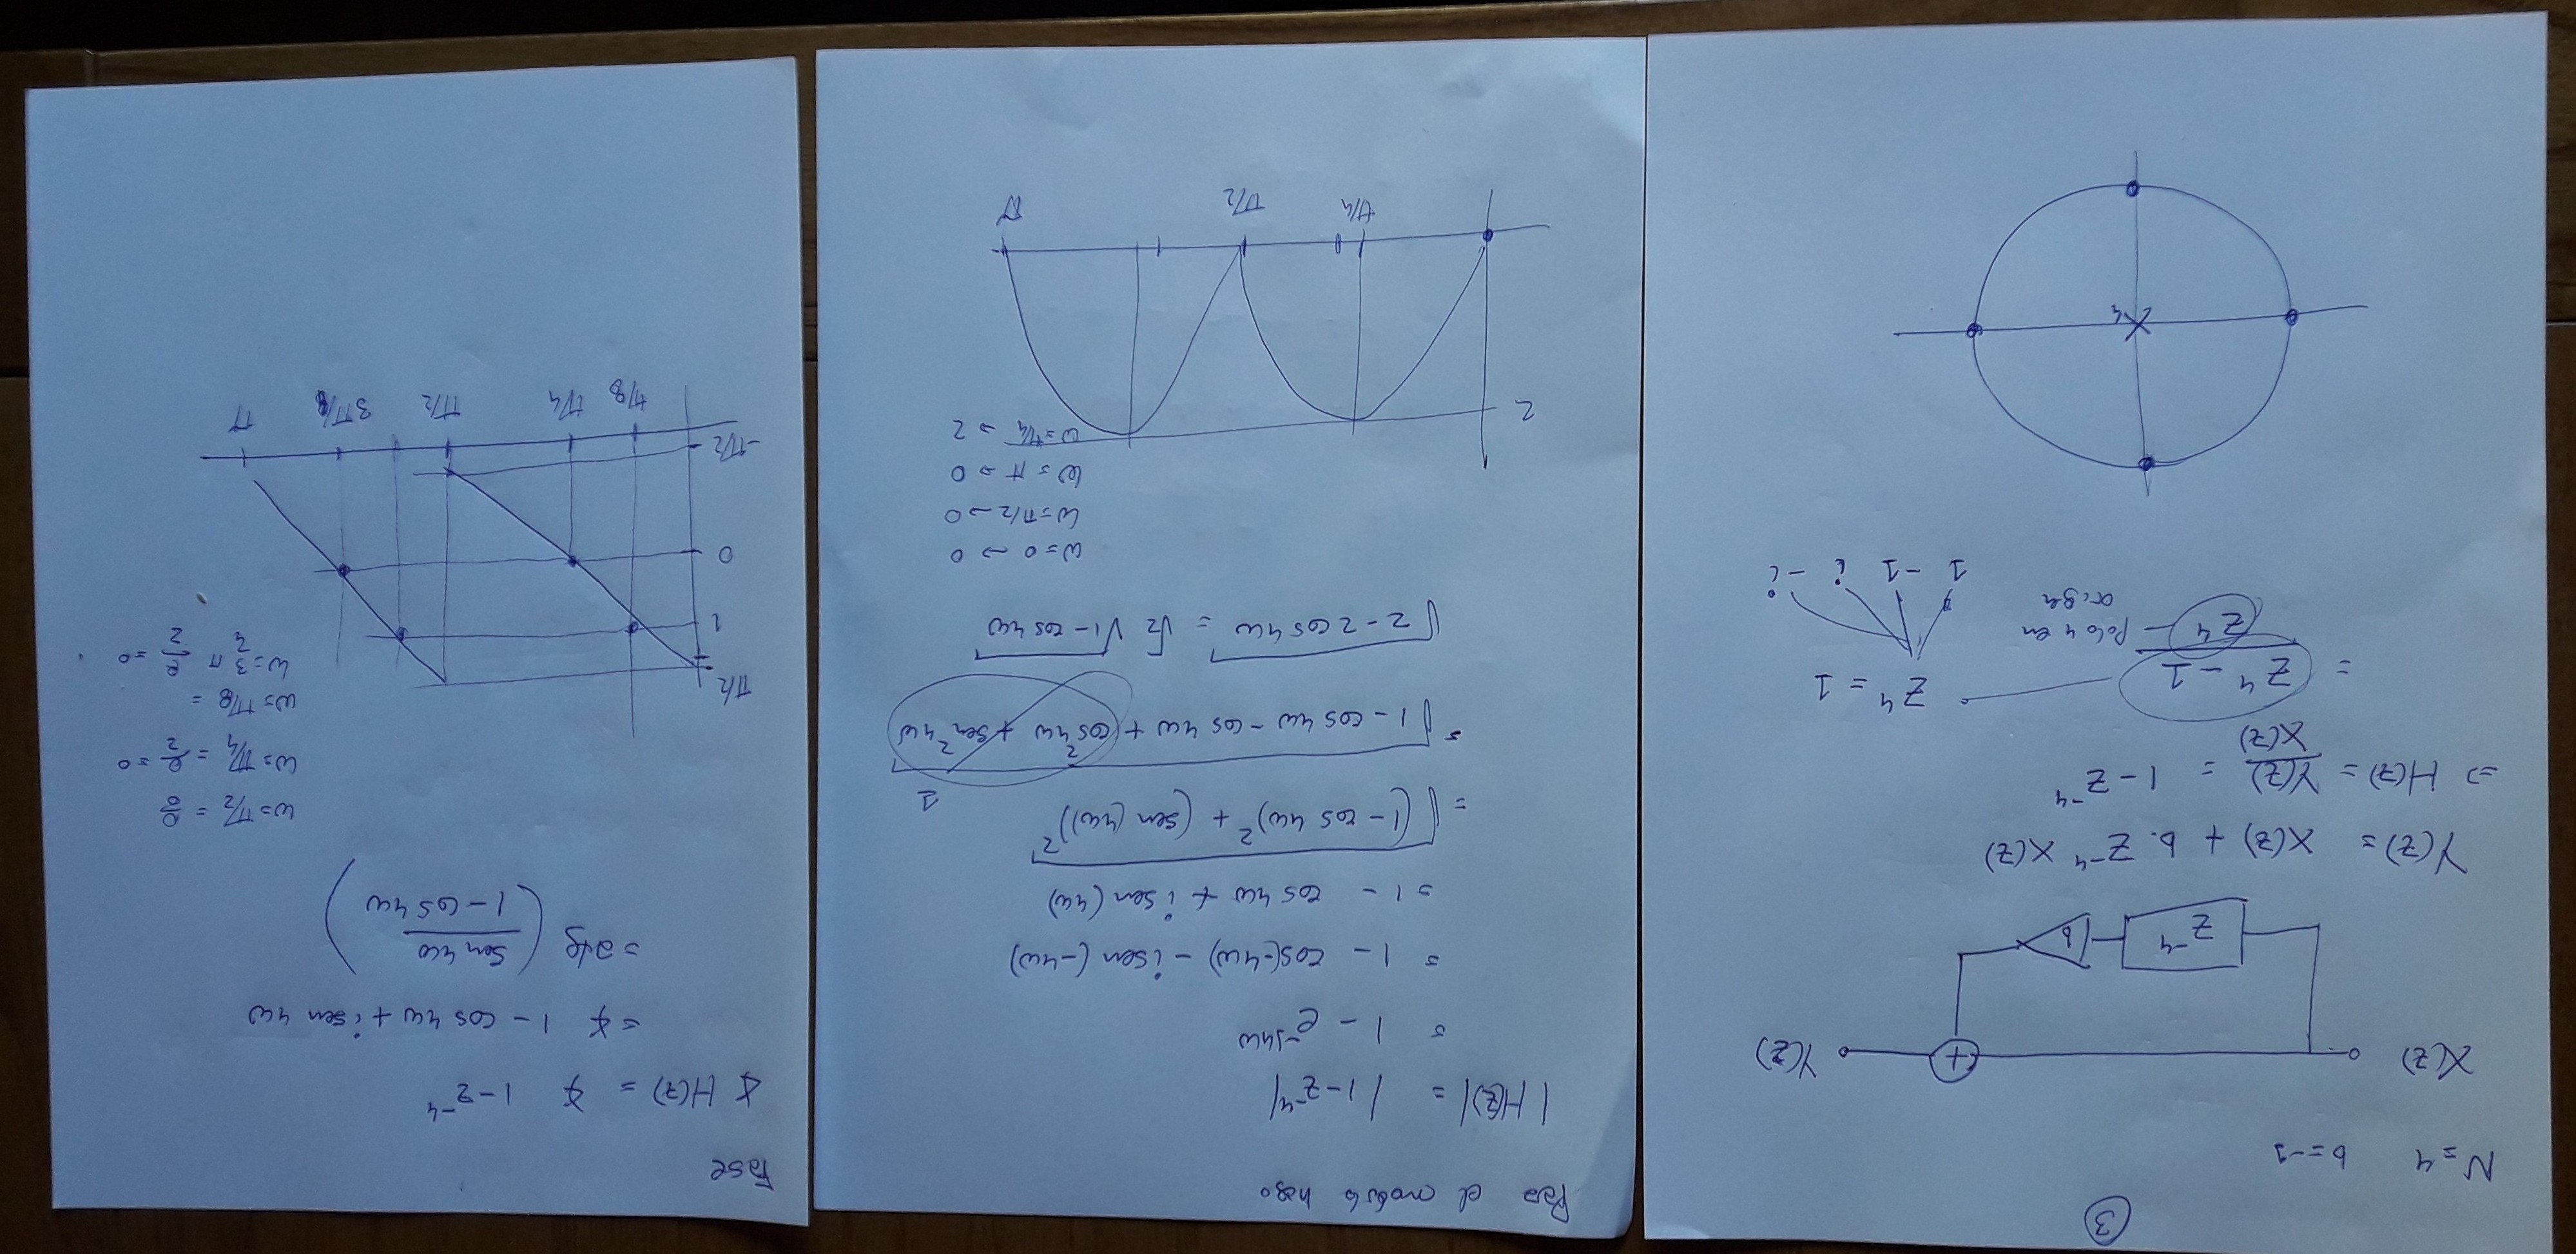 ③
N=4 b=-1
X(z) + Y(z)
z⁻⁴ b
Y(z)= X(z) + b. z⁻⁴ X(z)
=> H(z) = Y(z)/X(z) = 1 - z⁻⁴
= z⁴ - 1 / z⁴ z⁴ = 1
Polo 4 en
origen
1 -1 i -i
4
el modulo hago
|H(z)| = |1-z⁻⁴|
= 1 - e^-j4ω
= 1 - cos(-4ω) - i sen (-4ω)
= 1 - cos 4ω + i sen (4ω)
= √((1-cos 4ω)² + (sen (4ω))²)
1
= √(1 - cos 4ω - cos 4ω + cos² 4ω + sen² 4ω)
√(2 - 2 cos 4ω) = √2 √(1-cos 4ω)
ω=0 → 0
ω=π/2 → 0
ω=π → 0
ω=π/4 → 2
2
π/4 π/2 π
Fase
∡ H(z) = ∡ 1-z⁻⁴
= ∡ 1 - cos 4ω + i sen 4ω
= atg (sen 4ω / 1-cos 4ω)
ω=π/2 = 0/0
ω=π/4 = 0/2 = 0
ω=π/8 =
ω=3/4 π 0/2 = 0
π/2
1
0
-π/2
π/8 π/4 π/2 π